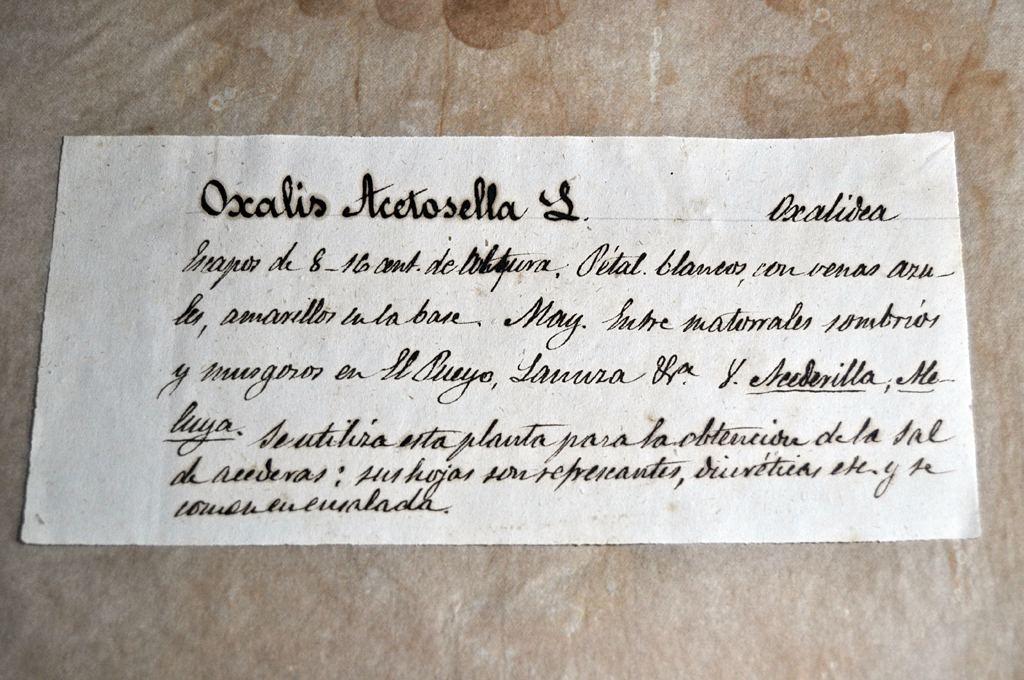 Oxalis Acetosella L. Oxalidea
Escapos de 8-16 cent. de altura. Pétal. blancos, con venas azu-
les, amarillos en la base. May. Entre matorrales sombríos
y musgosos en El Pueyo, Lanuza &ª V. Acederilla, Ale-
luya. Se utiliza esta planta para la obtencion de la sal
de acederas: sus hojas son refrescantes, diuréticas etc. y se
comen en ensalada.